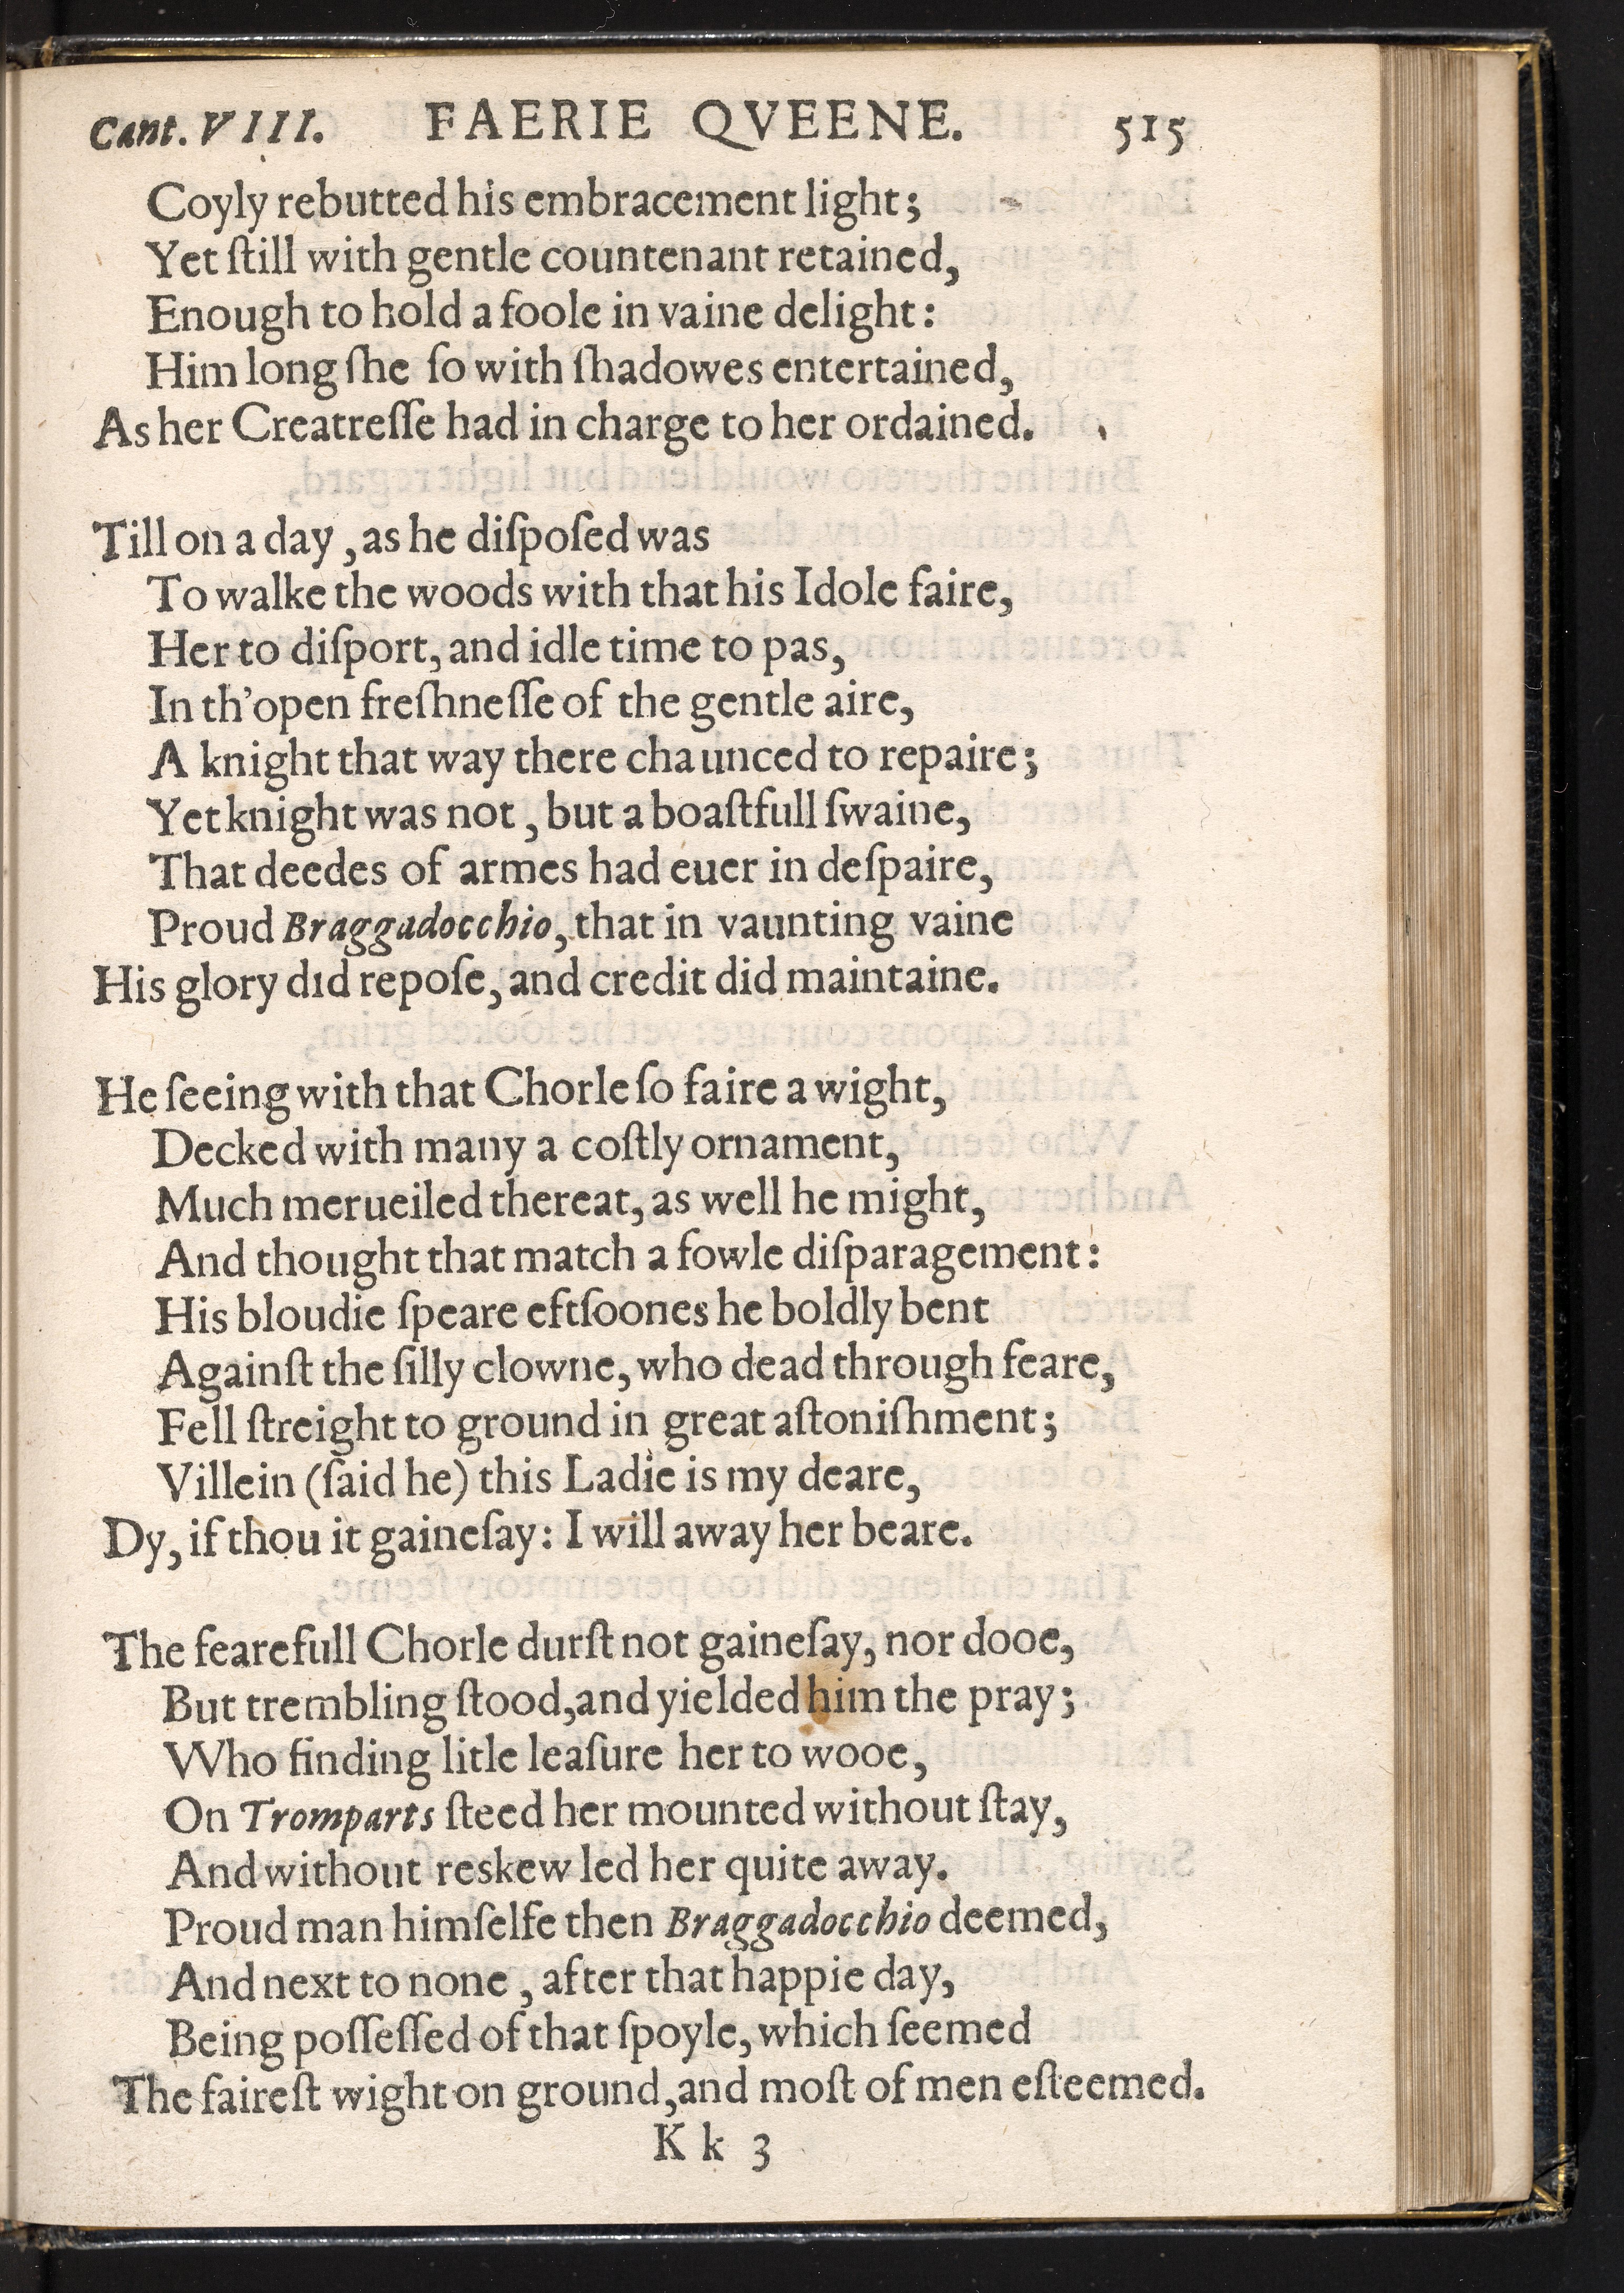 Cant. VIII. FAERIE QVEENE. 515
Coyly rebutted his embracement light;
Yet ſtill with gentle countenant retained,
Enough to hold a foole in vaine delight:
Him long ſhe ſo with ſhadowes entertained,
As her Creatreſſe had in charge to her ordained.
Till on a day, as he diſpoſed was
To walke the woods with that his Idole faire,
Her to diſport, and idle time to pas,
In th'open freſhneſſe of the gentle aire,
A knight that way there chaunced to repaire;
Yet knight was not, but a boaſtfull ſwaine,
That deedes of armes had euer in deſpaire,
Proud Braggadocchio, that in vaunting vaine
His glory did repoſe, and credit did maintaine.
He ſeeing with that Chorle ſo faire a wight,
Decked with many a coſtly ornament,
Much merueiled thereat, as well he might,
And thought that match a fowle diſparagement:
His bloudie ſpeare eftſoones he boldly bent
Againſt the ſilly clowne, who dead through feare,
Fell ſtreight to ground in great aſtoniſhment;
Villein (ſaid he) this Ladie is my deare,
Dy, if thou it gaineſay: I will away her beare.
The fearefull Chorle durſt not gaineſay, nor dooe,
But trembling ſtood, and yielded him the pray;
Who finding litle leaſure her to wooe,
On Tromparts ſteed her mounted without ſtay,
And without reskew led her quite away.
Proud man himſelfe then Braggadocchio deemed,
And next to none, after that happie day,
Being poſſeſſed of that ſpoyle, which ſeemed
The faireſt wight on ground, and moſt of men eſteemed.
K k 3